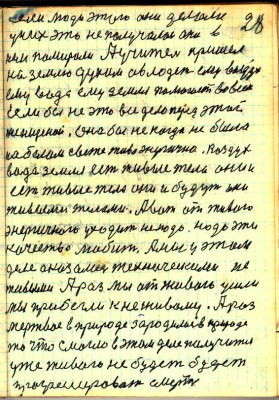 28
если люди этого они делали
у них это не получалось они в
нем помирали А учитель пришел
на землю духом овладел ему воздух
ему вода ему земля помогает во всем
если бы не это все дело перед этой
женщиной. Она бы не когда не была
на белом свете тиво энергична. Воздух
вода земля ест живые тела они и
ест живые тела они и будут они
живыми телами. А вот от живого
энергичного уходит не надо. Надо это
качество любит. А мы у этом
деле оказались техническими не
живыми А раз мы от живого ушли
мы прибегли к неживому. А раз
мертвое в природе зародилось в природе
то что смогло в этом деле получится
уже живого не будет будет
прогрессироват смерть